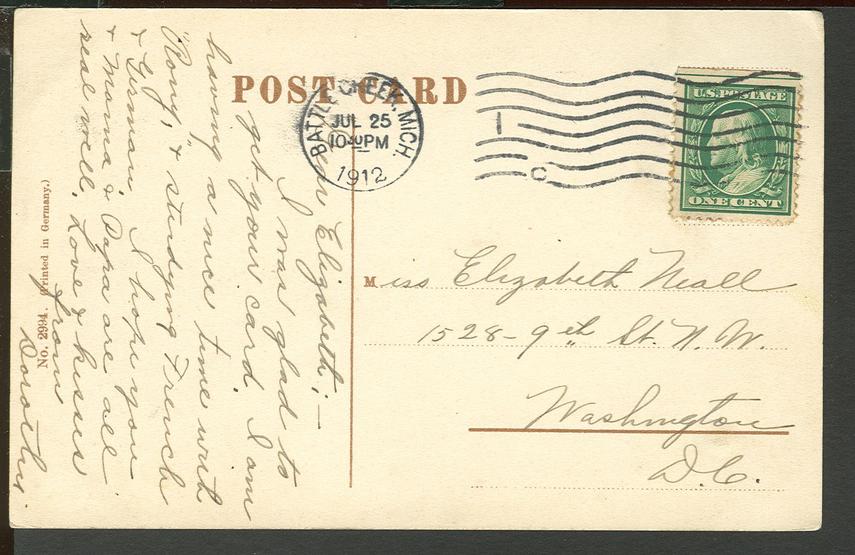 POST CARD
BATTLE CREEK, MICH.
JUL 25
10 PM
1912
U.S. POSTAGE
ONE CENT
Miss Elizabeth Neall
1528-9th St. N.W.
Washington
D.C.
Dear Elizabeth;-
I was glad to
get your card. I am
having a nice time with
"Rony", & studying French
& German. I hope you
& Mama & Papa are all
real well. Love & kisses
from
Dorothy.
No. 2934. (Printed in Germany.)